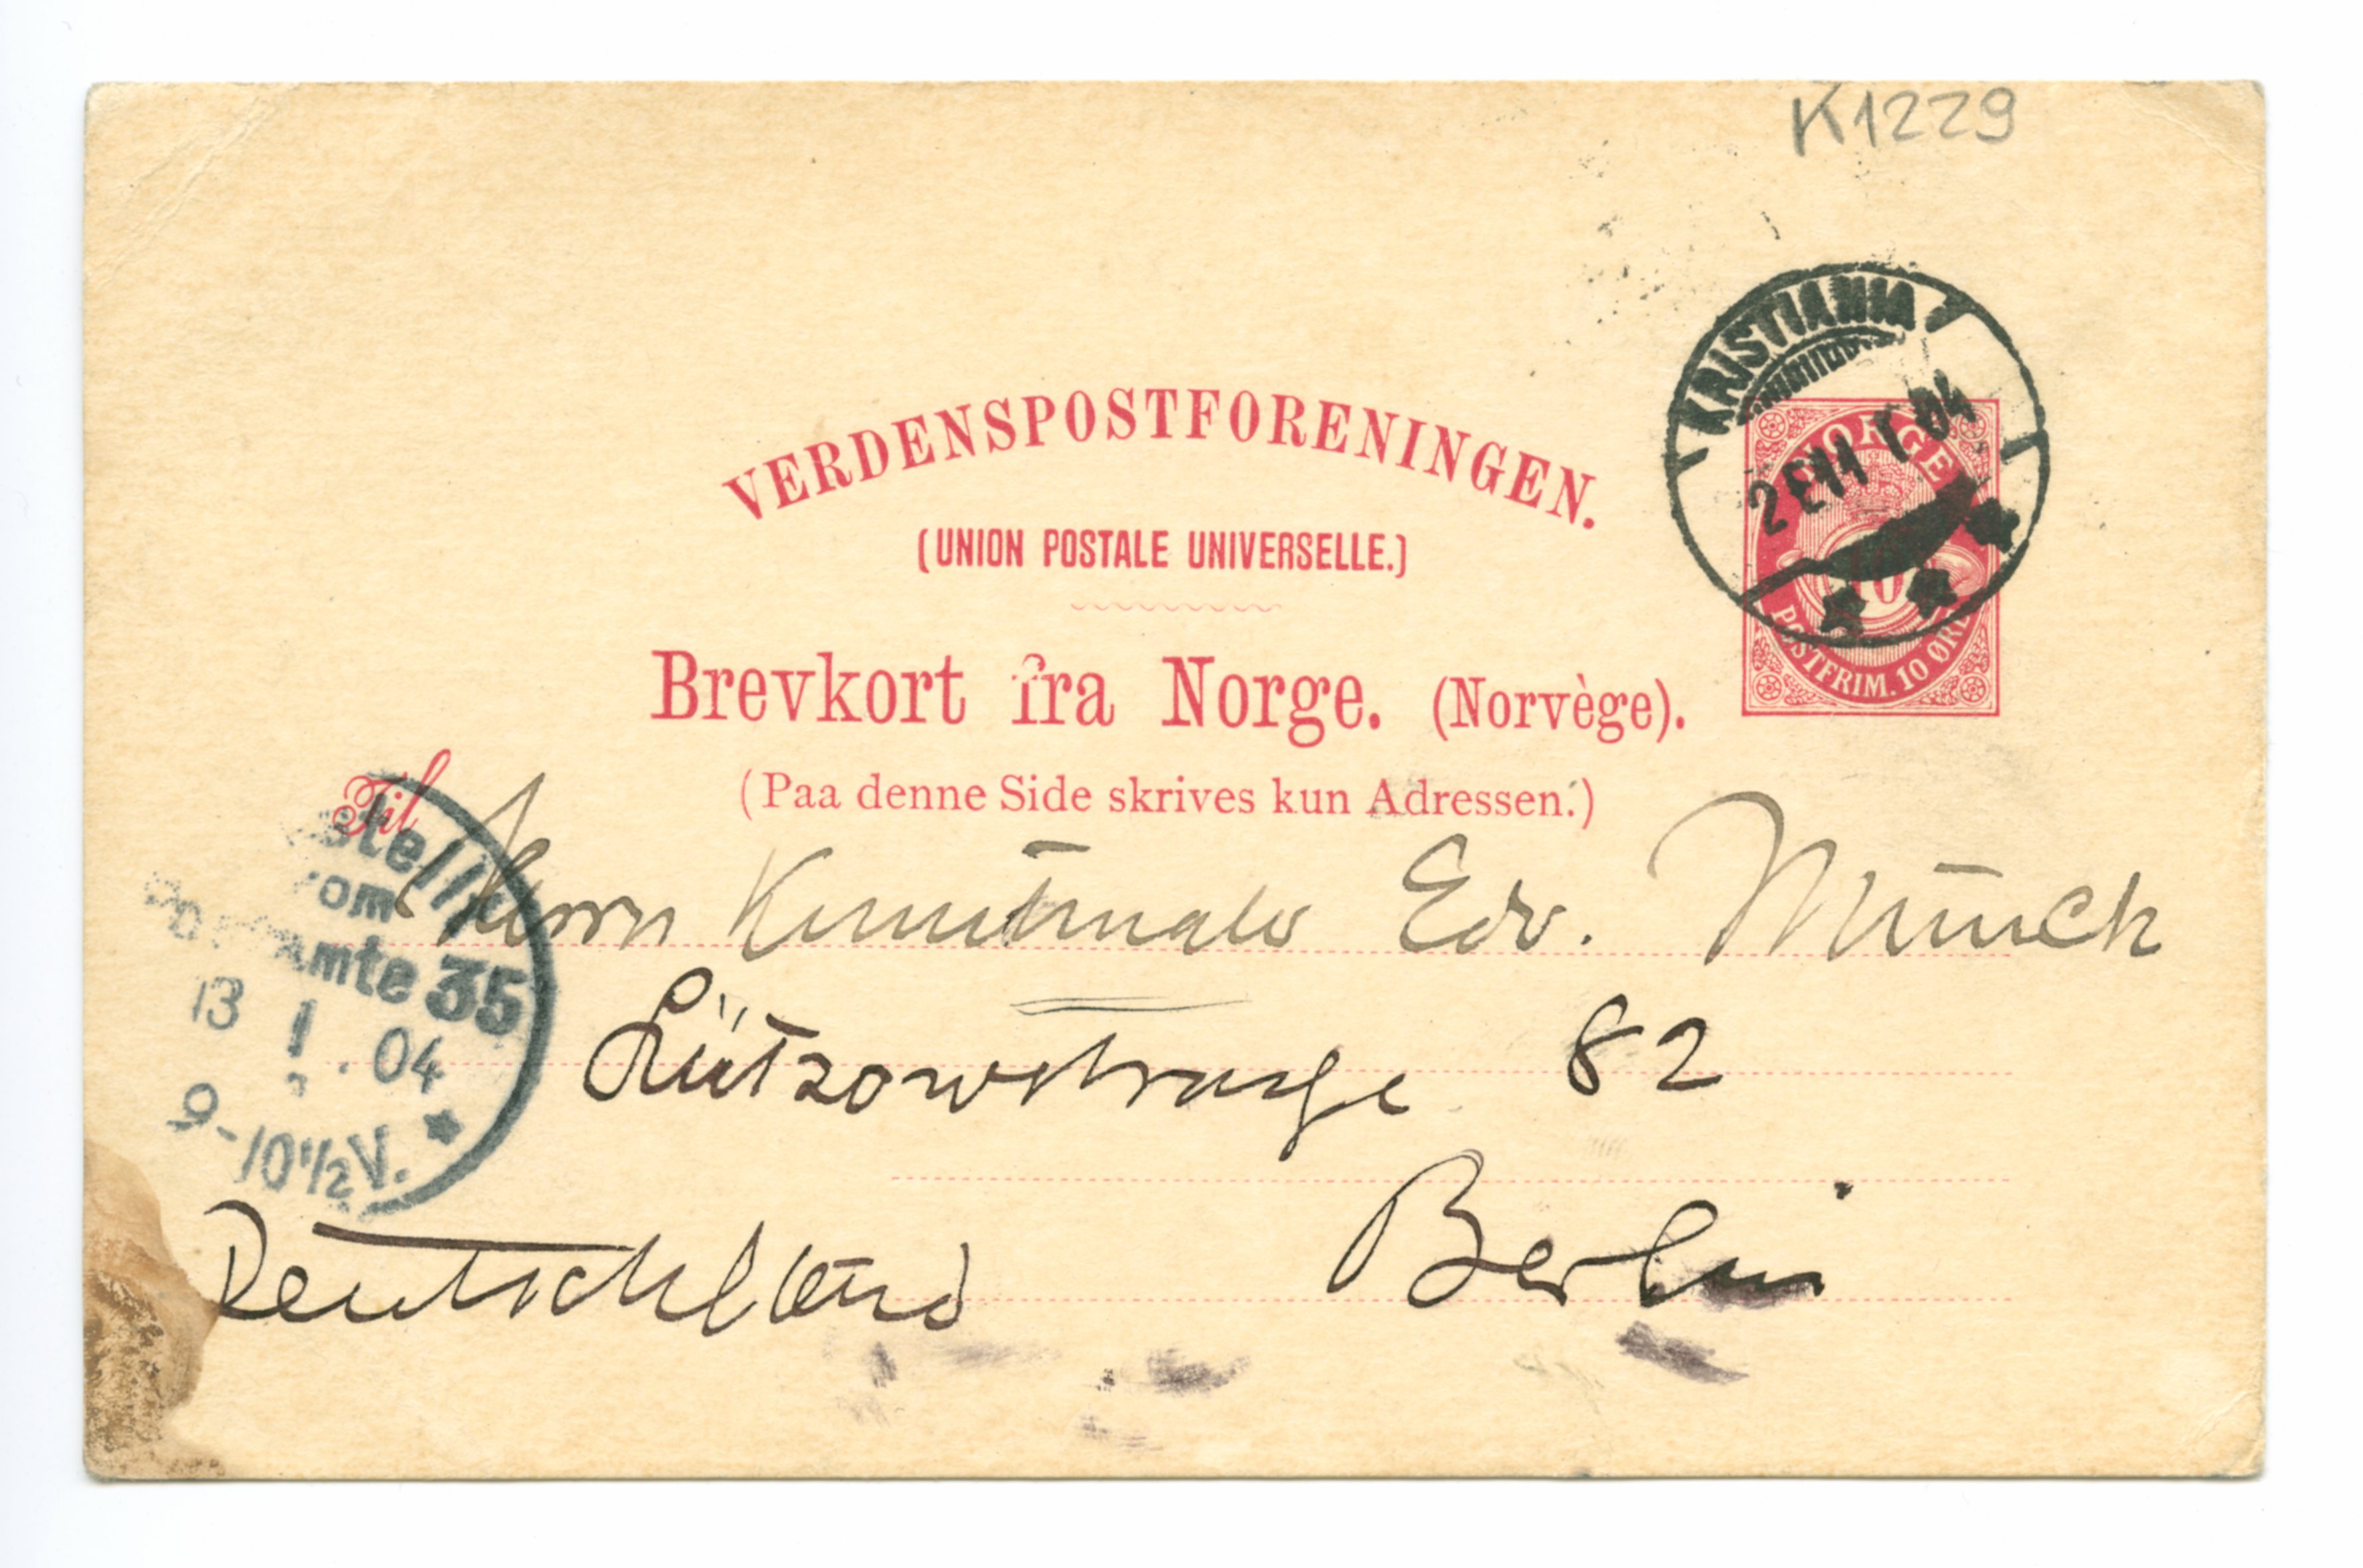 K1229
KRISTIANIA
2 E 11 I 04
NORGE
10
POSTFRIM. 10 ØRE
VERDENSPOSTFORENINGEN.
(UNION POSTALE UNIVERSELLE.)
Brevkort fra Norge. (Norvège).
(Paa denne Side skrives kun Adressen.)
Til
Herrn Kunstmaler Edv. Münch
Lützowstrasse 82
Berlin
Deutschland
stellt
vom
Postamte 35
13 1. 04
9-10½V.